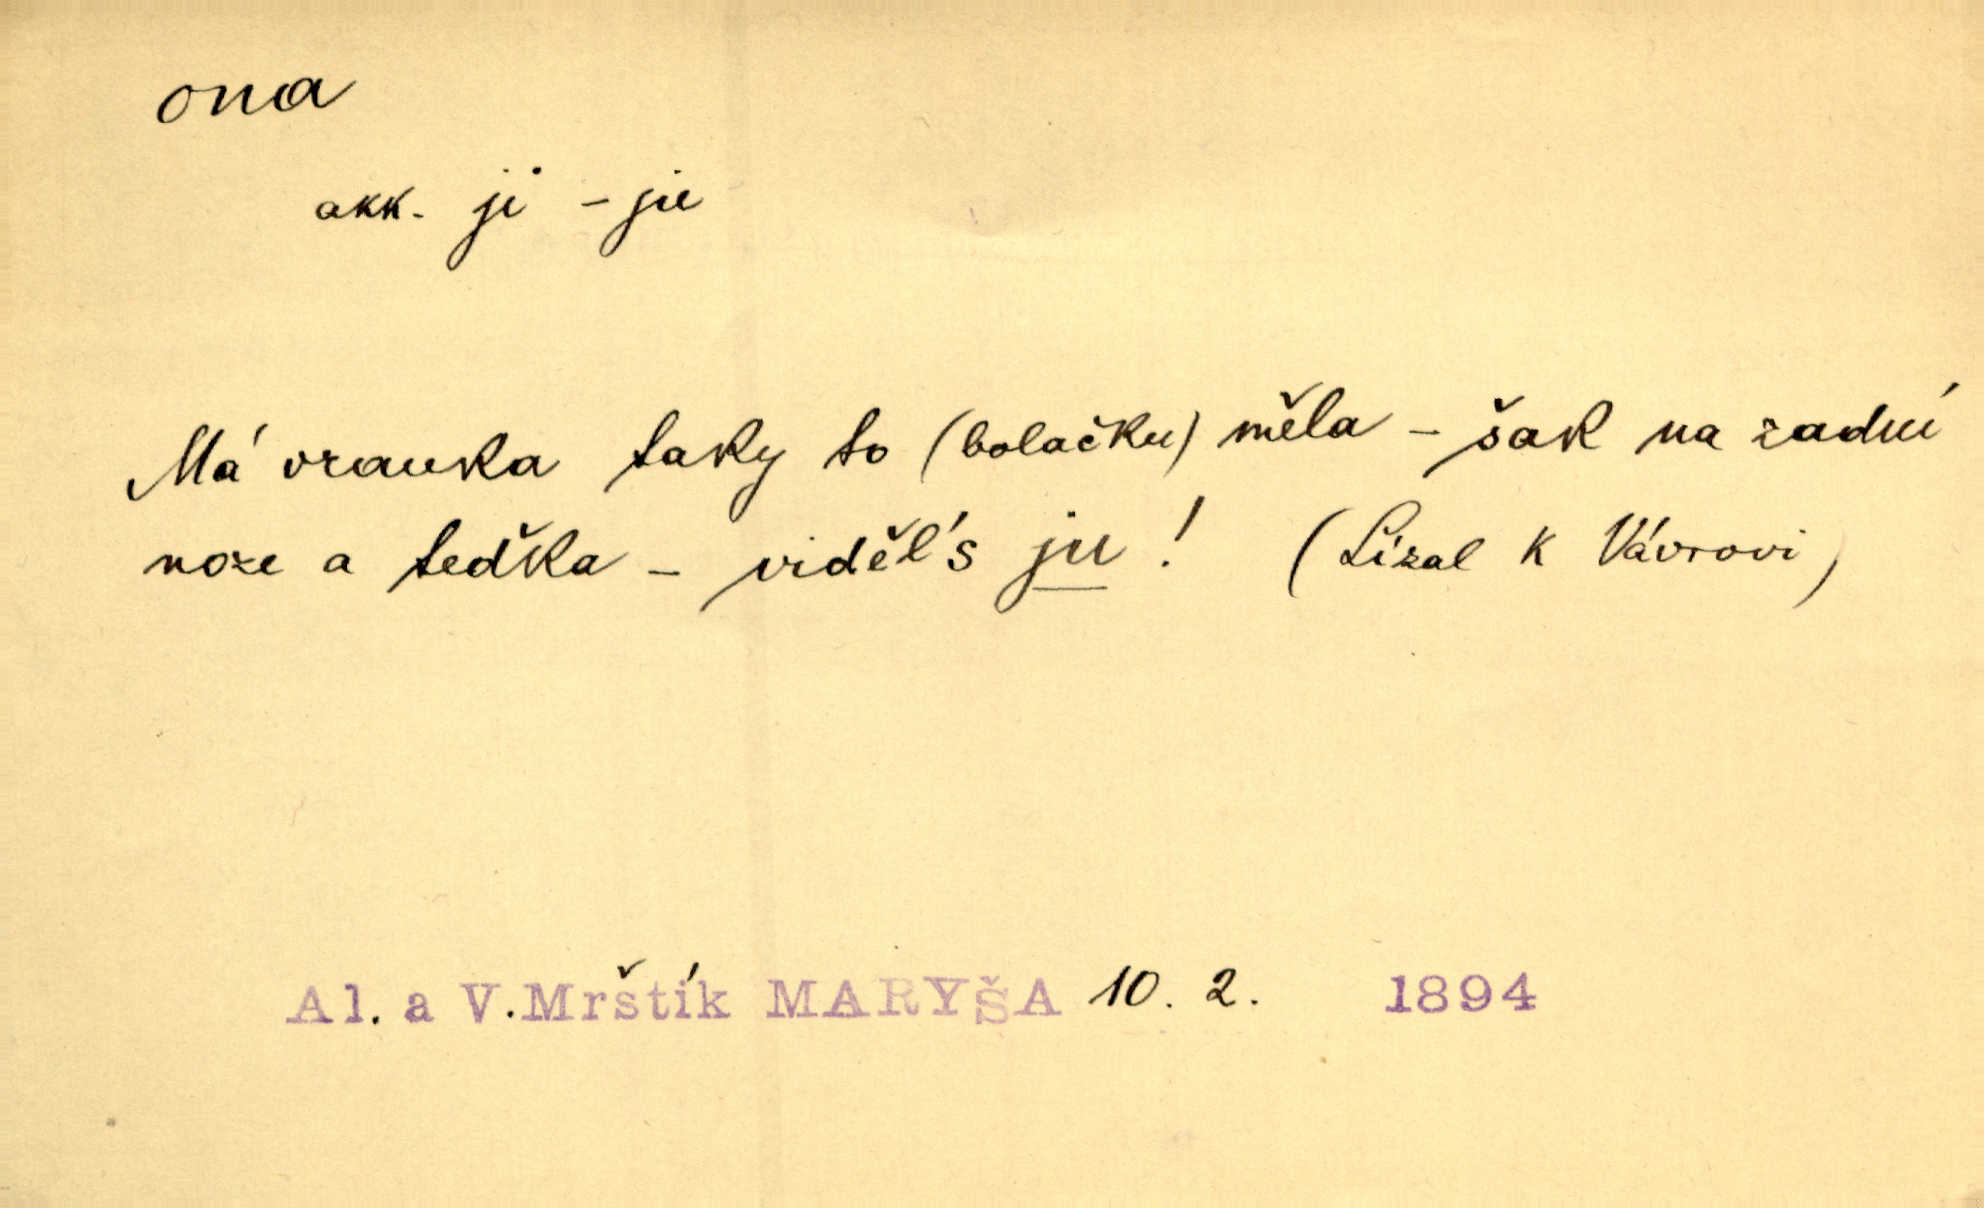 ona
akk. ji - ju
Má vranka taky to (bolačku) měla - šak na zadní
noze a tedka - viděl's ju! (Lízal k Vávrovi)
Al. a V. Mrštík MARYŠA 10. 2. 1894